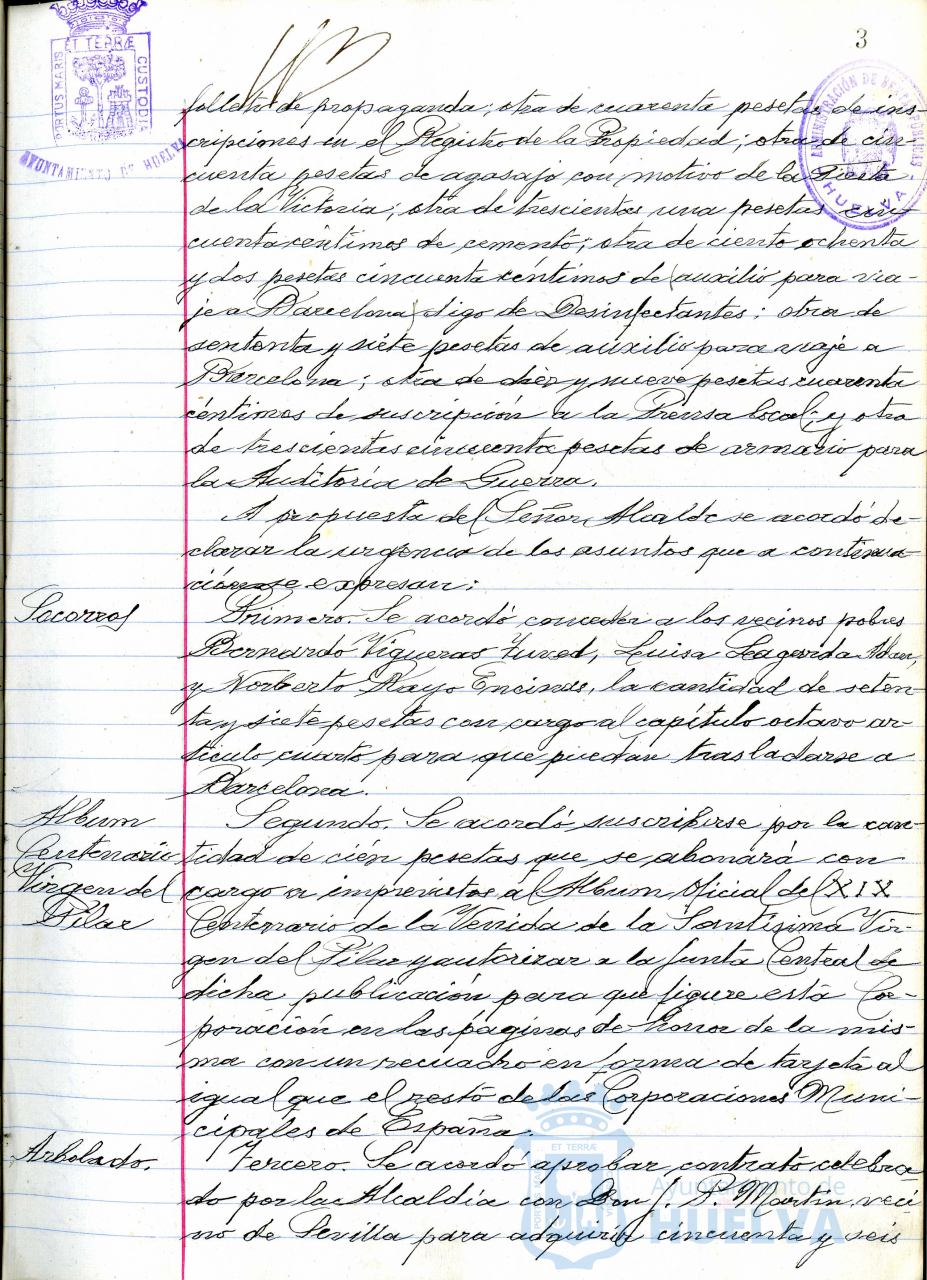 3
ET TERRÆ
PORTUS MARIS
CUSTODIA
AYUNTAMIENTO DE HUELVA
HUELVA
folleto de propaganda; otra de cuarenta pesetas de ins-
cripciones en el Registro de la Propiedad; otra de cin-
cuenta pesetas de agasajo con motivo de la Fiesta
de la Victoria; otra de trescientas una pesetas cin-
cuenta céntimos de cemento; otra de ciento ochenta
y dos pesetas cincuenta céntimos de (auxilio para via-
je a Barcelona) digo de Desinfectantes; otra de
sententa y siete pesetas de auxilio para viaje a
Barcelona; otra de diez y nueve pesetas cuarenta
céntimos de suscripción a la Prensa local; y otra
de trescientas cincuenta pesetas de armario para
la Auditoría de Guerra.
A propuesta del Señor Alcalde se acordó de-
clarar la urgencia de los asuntos que a continua-
ción se expresan:
Socorros
Primero. Se acordó conceder a los vecinos pobres
Bernardo Vigueras Luisa
y Norberto Rayo Encinas, la cantidad de seten-
ta y siete pesetas con cargo al capítulo octavo ar-
tículo cuarto para que puedan trasladarse a
Barcelona.
Album
Centenario
Virgen del
Pilar
Segundo. Se acordó suscribirse por la can-
tidad de cién pesetas que se abonará con
cargo a imprevistos al Album Oficial del XIX
Centenario de la Venida de la Santísima Vir-
gen del Pilar y autorizar a la Junta Central de
dicha publicación para que figure esta Cor-
poración en las páginas de honor de la mis-
ma con un recuadro en forma de tarjeta al
igual que el resto de las Corporaciones Muni-
cipales de España.
Arbolado.
Tercero. Se acordó aprobar contrato celebra-
do por la Alcaldía con Don J. P. Martín, veci-
no de Sevilla para adquirir cincuenta y seis
ET TERRÆ
Ayuntamiento de
HUELVA